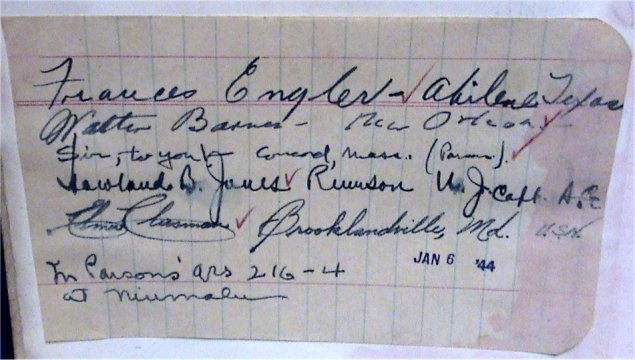 Frances Engler - Abilene Texas
Walter Barnes - New Orleans -
Concord, Mass. (Parsons).
Rowland B. Jones Rumson N.J. Capt. A.C.
Brooklandville, Md. USN
JAN 6 '44
In Parsons' qrs 216-4
at Niumalu